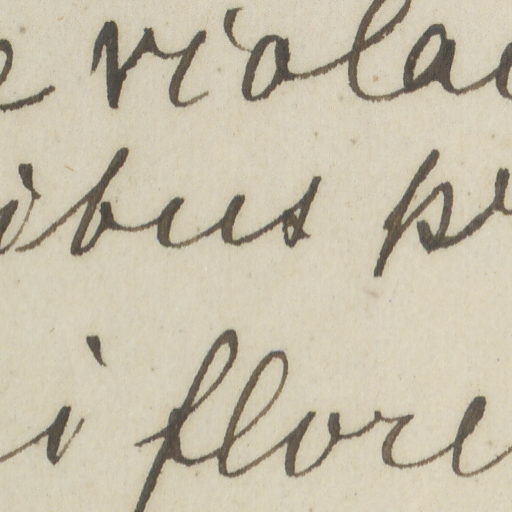 e violac
ibus pr
i flore